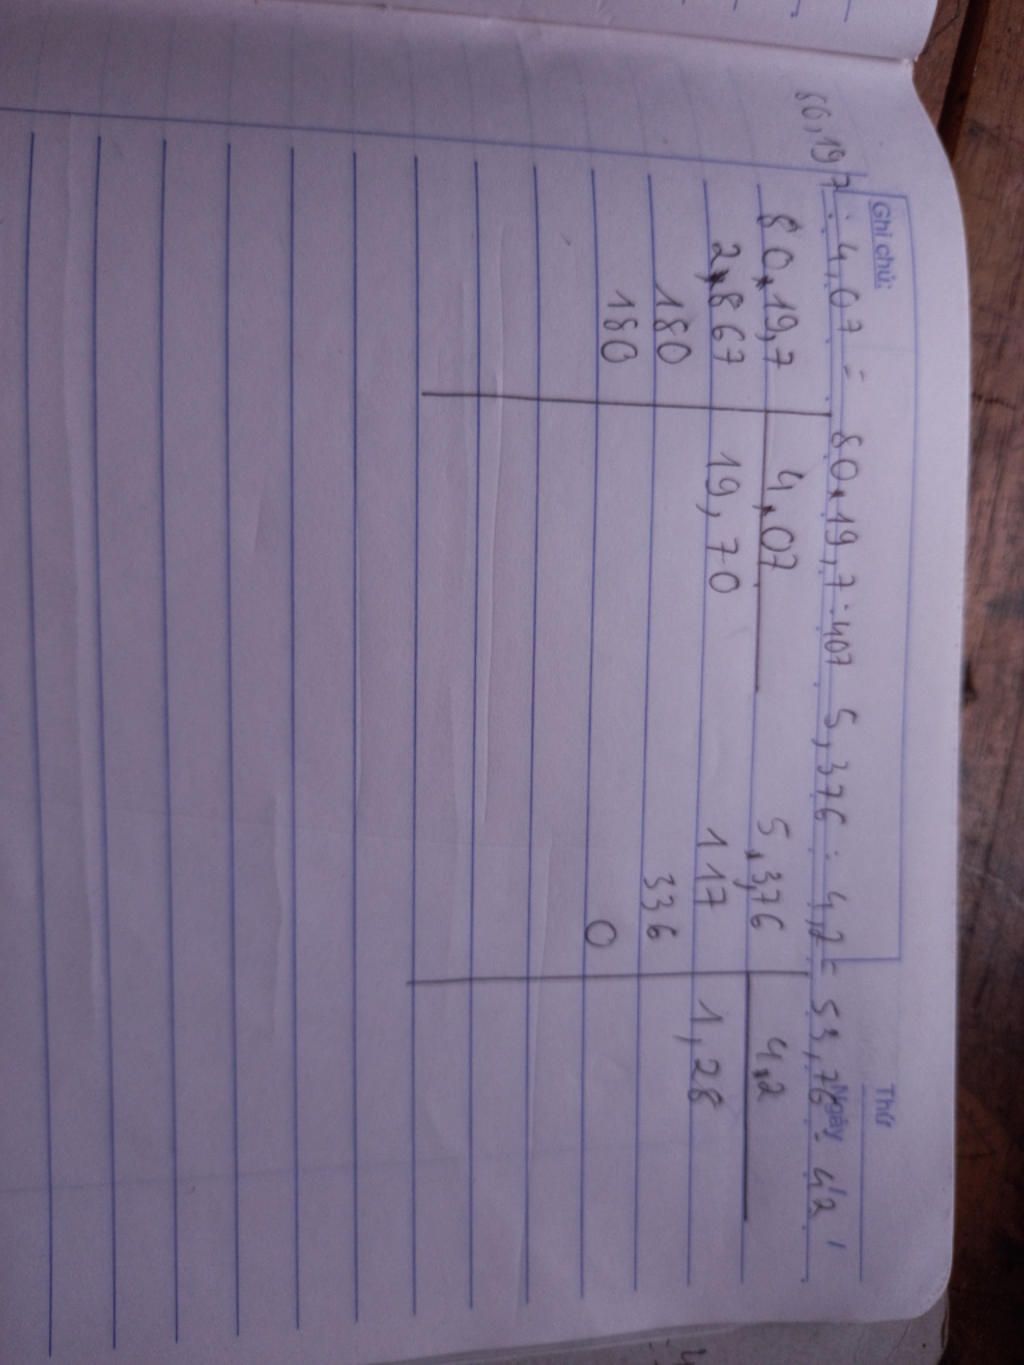 Ghi chú:
Thứ
Ngày
80,197 : 4,07 = 80.19,7 : 407 5,376 : 4,2 = 53,76 : 42
80,19,7 4,07 5,3,76 4,2
2,867 19,70 117 1,28
180 336
180 0